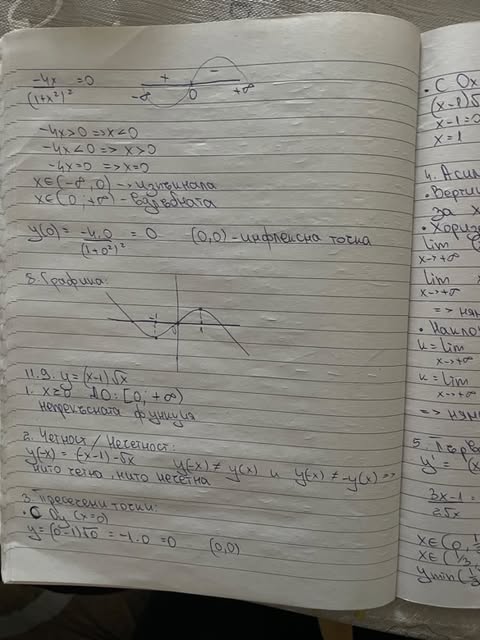 -4x/(1+x²)² = 0
+ -
-∞ 0 +∞
-4x>0 => x<0
-4x<0 => x>0
-4x=0 => x=0
x∈(-∞, 0) - изпъкнала
x∈(0; +∞) - вдлъбната
y(0)= -4.0/(1+0²)² = 0 (0,0) - инфлексна точка
8. Графика:
-1 0 1
11.9. y=(x-1)√x
1. x≥0 ДО: [0; +∞)
непрекъсната функция
2. Четност / Нечетност:
y(-x) = (-x-1)-√x y(-x) ≠ y(x) и y(-x) ≠ -y(x) =>
нито четна, нито нечетна
3. Пресечни точки:
• С Oy (x=0)
y=(0-1)√0 = -1.0 = 0 (0,0)
• С Ox
(x-1)√
x-1=0
x=1
4. Асим
• Верти
за x
• Хориз
lim
x->+∞
lim
x->+∞
=> ням
• Накло
k=lim
x->+∞
k=lim
x->+∞
=> ням
5. Първ
y' = (x
3x-1=
2√x
x∈(0, 1/
x∈(1/3,
ymin(1/3